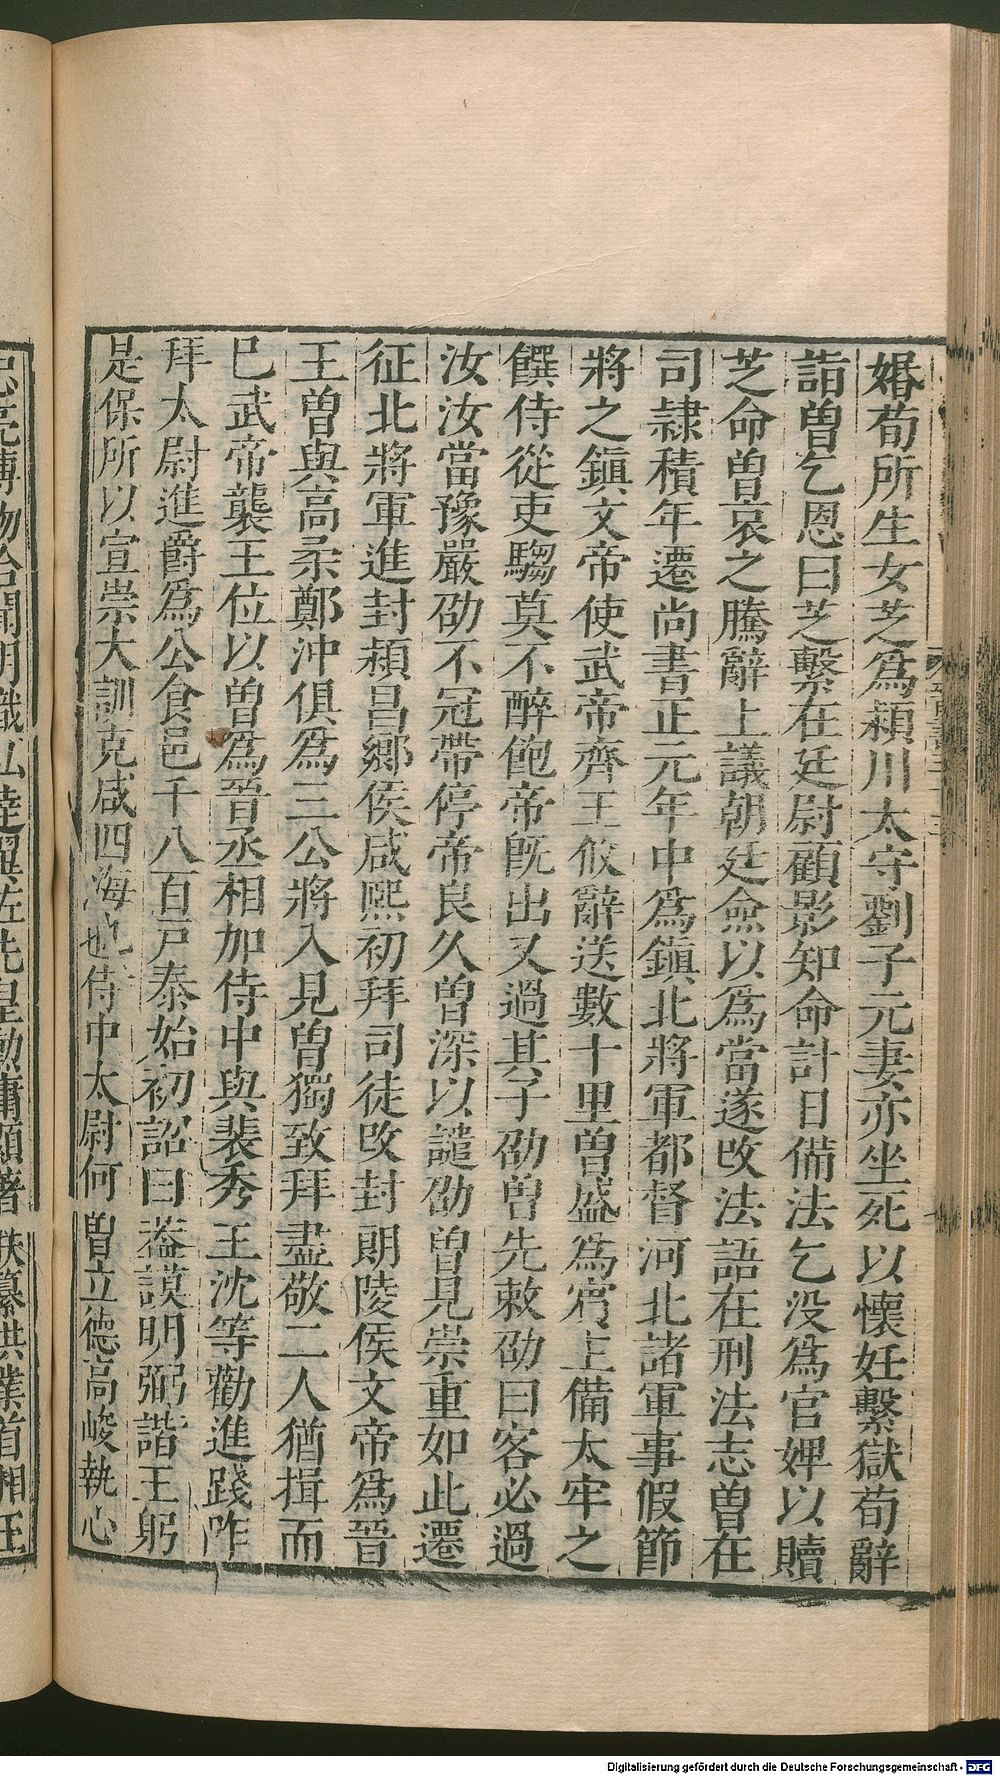 婚荀所生女芝爲潁川太守劉子元妻亦坐死以懷妊繫獄荀辭
詣曾乞恩曰芝繫在廷尉顧影知命計日備法乞没爲官婢以贖
芝命曾哀之騰辭上議朝廷僉以爲當遂改法語在刑法志曾在
司隷積年遷尚書正元年中爲鎭北將軍都督河北諸軍事假節
將之鎭文帝使武帝齊王攸辭送數十里曾盛爲賓主備太牢之
饌侍從吏騶莫不醉飽帝既出又過其子劭曾先敕劭曰客必過
汝汝當豫嚴劭不冠帶停帝良久曾深以譴劭曾見崇重如此遷
征北將軍進封潁昌鄉侯咸熙初拜司徒改封朗陵侯文帝爲晉
王曾與高柔鄭沖俱爲三公將入見曾獨致拜盡敬二人猶揖而
已武帝襲王位以曾爲晉丞相加侍中與裴秀王沈等勸進踐阼
拜太尉進爵爲公食邑千八百戸泰始初詔曰葢謨明弼諧王躬
是保所以宣崇大訓克咸四海也侍中太尉何曾立德高峻執心
Digitalisierung gefördert durch die Deutsche Forschungsgemeinschaft - DFG